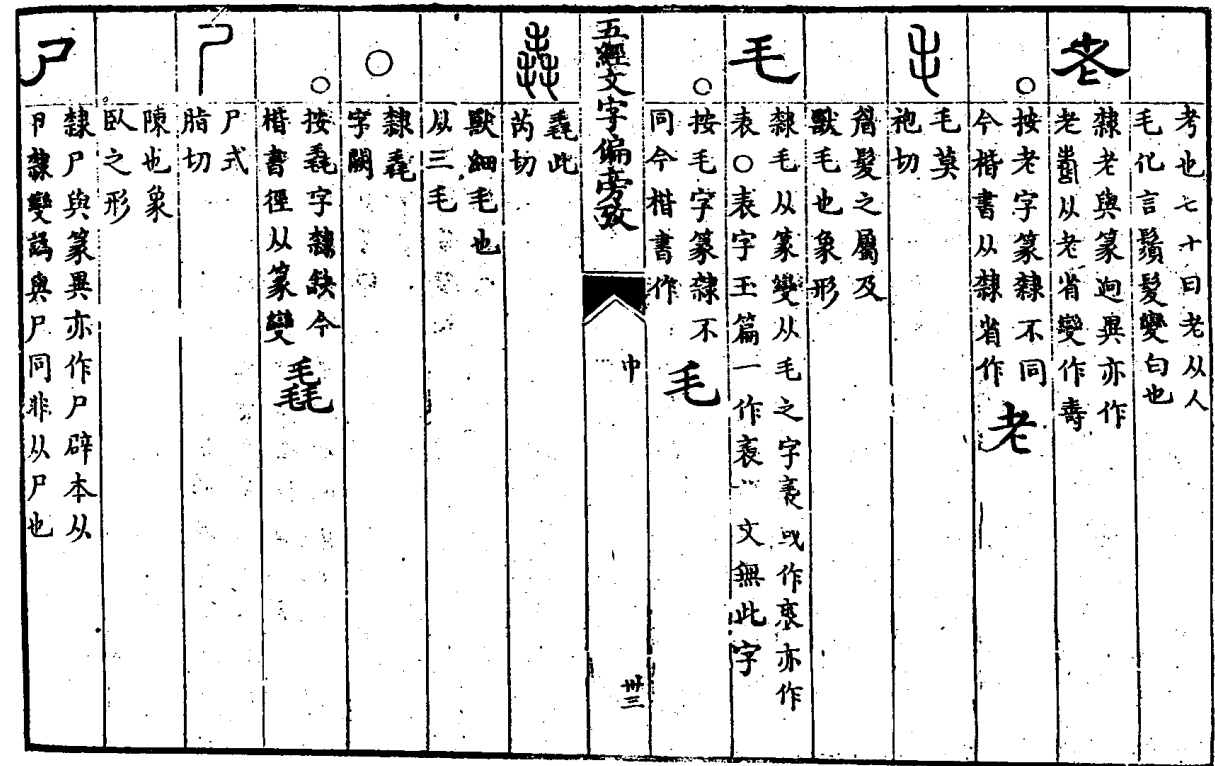 考也七十曰老从人
毛化言鬚髮變白也
老
隸老與篆迥異亦作
老 从老省變作壽
〇
按老字篆隸不同
今楷書从隸省作
老
毛
毛莫
袍切
眉髮之屬及
獸毛也象形
毛
隸毛从篆變从毛之字 或作 亦作
表〇表字玉篇一作 文無此字
〇
按毛字篆隸不
同今楷書作
毛
五經文字偏旁攷
中
卅三
毳
毳此
芮切
獸細毛也
从三毛
〇
隸毳
字闕
〇
按毳字隸缺今
楷書徑从篆變
毳
尸
尸式
脂切
陳也象
臥之形
尸
隸尸與篆異亦作尸辟本从
卪隸變譌與尸同非从尸也